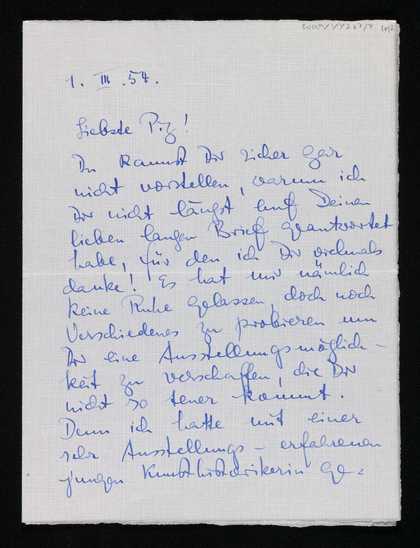 1. III. 54.
Liebste Piz!
Du kannst Dir sicher gar
nicht vorstellen, warum ich
Dir nicht längst auf Deinen
lieben langen Brief geantwortet
habe, für den ich Dir vielmals
danke! Es hat mir nämlich
keine Ruhe gelassen, doch noch
Verschiedenes zu probieren um
Dir eine Ausstellungsmöglich-
keit zu verschaffen, die Dir
nicht so teuer kommt.
Denn ich hatte mit einer
sehr Ausstellungs-erfahrenen
jungen Kunsthistorikerin ge-